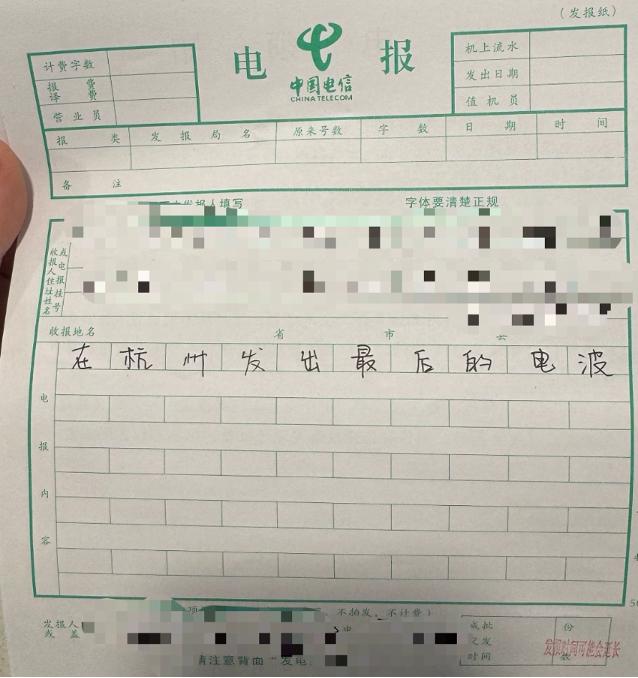 (发报纸)
电 报
中国电信
CHINA TELECOM
计费字数
报费
译费
营业员
机上流水
发出日期
值机员
报类 发报局名 原来号数 字数 日期 时间
备注
发报人填写 字体要清楚正规
收报人住址姓名
或电报挂号
收报地名 省 市 县
在杭州发出最后的电波
电报内容
不拍发、不计费)
发报人
或盖
请注意背面"发电
或批
之发
时间
份
数
发报时间可能会延长